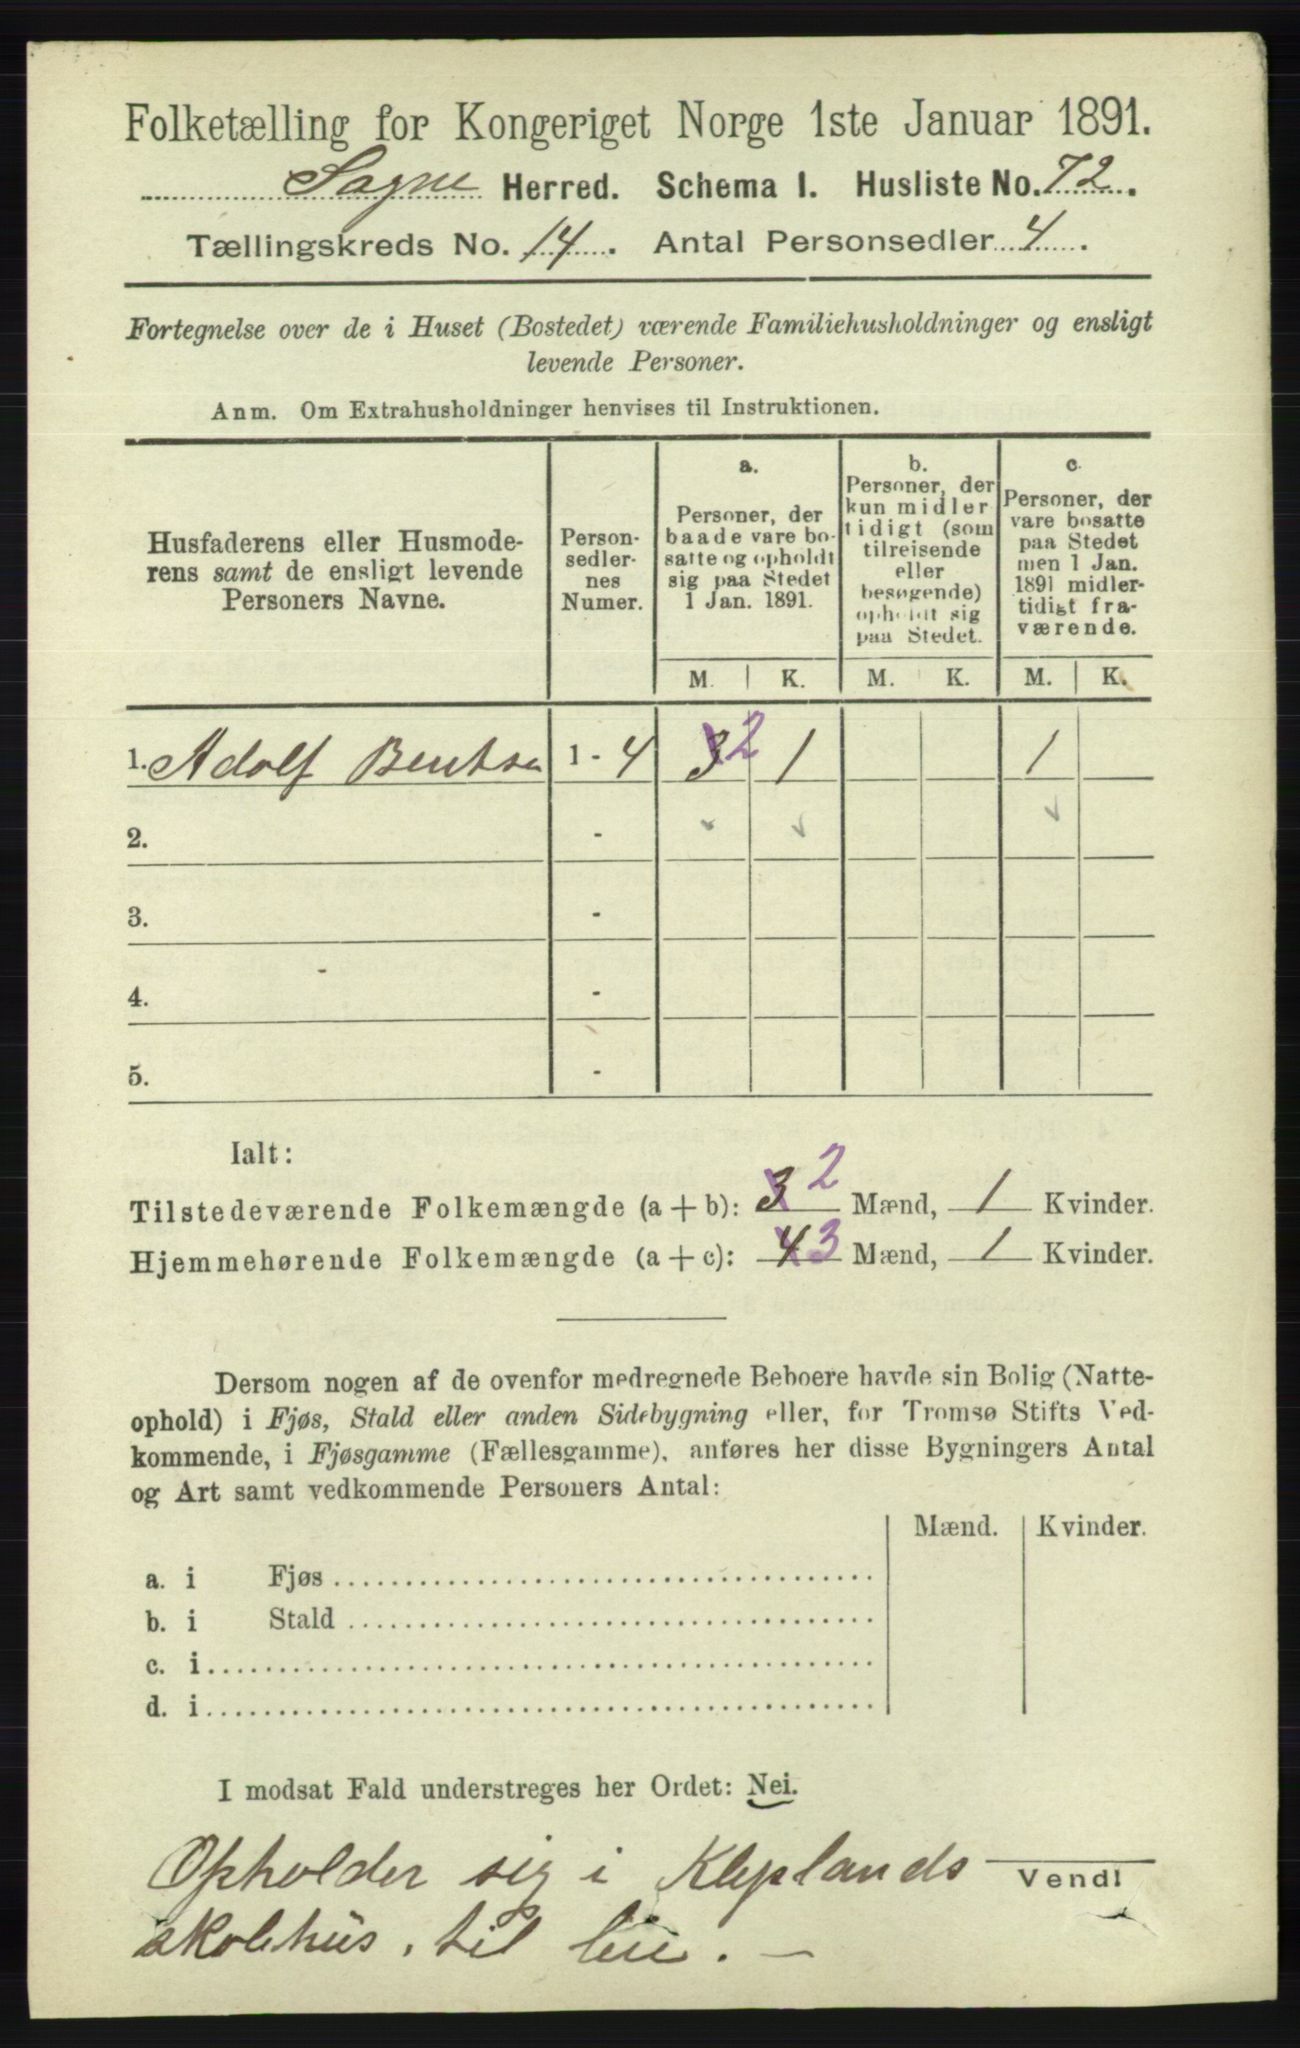 Folketælling for Kongeriget Norge 1ste Januar 1891.
Søgne Herred. Schema I. Husliste No. 72.
Tællingskreds No. 14. Antal Personsedler 4.
Fortegnelse over de i Huset (Bostedet) værende Familiehusholdninger og ensligt
levende Personer.
Anm. Om Extrahusholdninger henvises til Instruktionen.
Husfaderens eller Husmode-
rens samt de ensligt levende
Personers Navne.
Person-
sedler-
nes
Numer.
a.
Personer, der
baade vare bo-
satte og opholdt
sig paa Stedet
1 Jan. 1891.
b.
Personer, der
kun midler
tidigt (som
tilreisende
eller
besøgende)
opholdt sig
paa Stedet.
c.
Personer, der
vare bosatte
paa Stedet
men 1 Jan.
1891 midler-
tidigt fra-
værende.
M. K. M. K. M. K.
1. Adolf Bentsen 1 - 4 3 2 1 1
2. -
3. -
4. -
5. -
Ialt:
Tilstedeværende Folkemængde (a + b): 3 2 Mænd, 1 Kvinder.
Hjemmehørende Folkemængde (a + c): 4 3 Mænd, 1 Kvinder.
Dersom nogen af de ovenfor medregnede Beboere havde sin Bolig (Natte-
ophold) i Fjøs, Stald eller anden Sidebygning eller, for Tromsø Stifts Ved-
kommende, i Fjøsgamme (Fællesgamme), anføres her disse Bygningers Antal
og Art samt vedkommende Personers Antal:
Mænd. Kvinder.
a. i Fjøs
b. i Stald
c. i
d. i
I modsat Fald understreges her Ordet: Nei.
Opholder sig i Kleplands
skolehus, til leie. —
Vend!